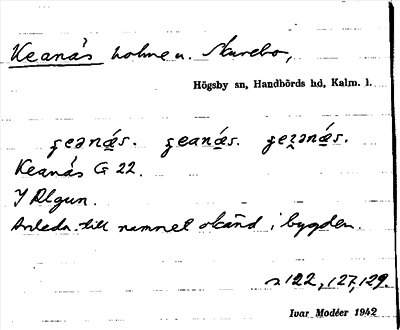 Keanås holme u. Skurebo,
Högsby sn, Handbörds hd, Kalm. l.
ꞔeanǽs. ꞔeanǽs. ꞔeꝛanǽs.
Keanås G 22.
I Algun.
Anledn. till namnet okänd i bygden.
~122, 127, 129.
Ivar Modéer 1942